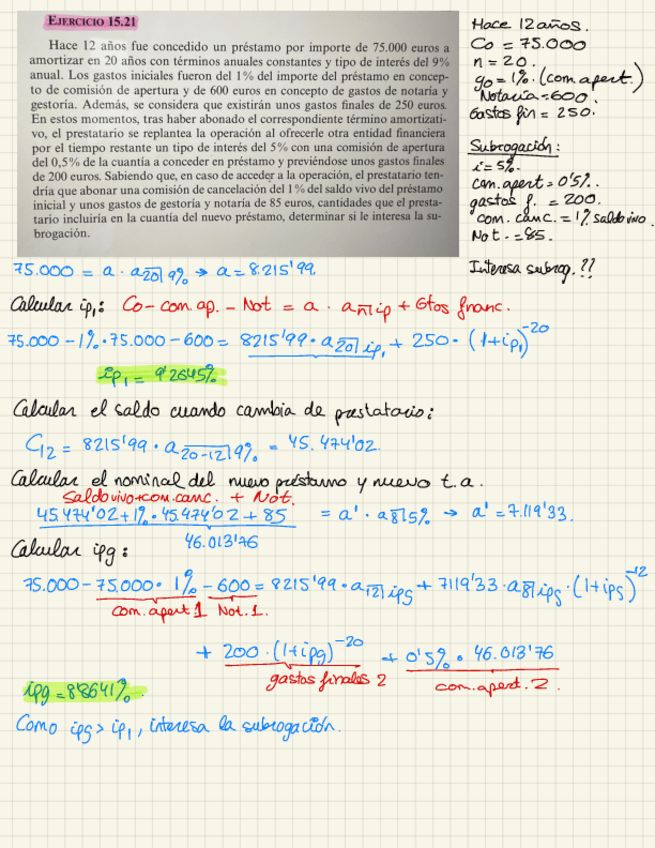 EJERCICIO 15.21
Hace 12 años fue concedido un préstamo por importe de 75.000 euros a
amortizar en 20 años con términos anuales constantes y tipo de interés del 9%
anual. Los gastos iniciales fueron del 1% del importe del préstamo en concep-
to de comisión de apertura y de 600 euros en concepto de gastos de notaría y
gestoría. Además, se considera que existirán unos gastos finales de 250 euros.
En estos momentos, tras haber abonado el correspondiente término amortizati-
vo, el prestatario se replantea la operación al ofrecerle otra entidad financiera
por el tiempo restante un tipo de interés del 5% con una comisión de apertura
del 0,5% de la cuantía a conceder en préstamo y previéndose unos gastos finales
de 200 euros. Sabiendo que, en caso de acceder a la operación, el prestatario ten-
dría que abonar una comisión de cancelación del 1% del saldo vivo del préstamo
inicial y unos gastos de gestoría y notaría de 85 euros, cantidades que el presta-
tario incluiría en la cuantía del nuevo préstamo, determinar si le interesa la su-
brogación.
Hace 12 años.
Co = 75.000
n = 20.
go = 1%. (com apert.)
Notaría = 600.
Gastos fin = 250.
Subrogación:
i = 5%.
com. apert = 0'5%..
gastos f. = 200.
com. canc. = 1% saldo vivo.
Not. = 85.
Interesa subrog. ??
75.000 = a · a20┐9% → a = 8.215'99
Calcular ip1: Co - com. ap. - Not = a · an┐ip + Gtos franc.
75.000 - 1%·75.000 - 600 = 8215'99 · a20┐ip1 + 250 · (1+ip1)^-20
ip1 = 9'2645%
Calcular el saldo cuando cambia de prestatario:
C12 = 8215'99 · a20-12┐9% = 45.474'02.
Calcular el nominal del nuevo préstamo y nuevo t.a.
Saldo vivo + com. canc. + Not.
45.474'02 + 1%·45.474'02 + 85 = a' · a8┐5% → a' = 7.119'33.
46.013'76
Calcular ipg:
75.000 - 75.000 · 1% - 600 = 8215'99 · a12┐ips + 7119'33 · a8┐ips · (1+ips)^-12
com. apert 1 Not. 1.
+ 200 · (1+ipg)^-20 + 0'5% · 46.013'76
gastos finales 2 com. apert. 2.
ipg = 8'8641%.
Como ips > ip1, interesa la subrogación.